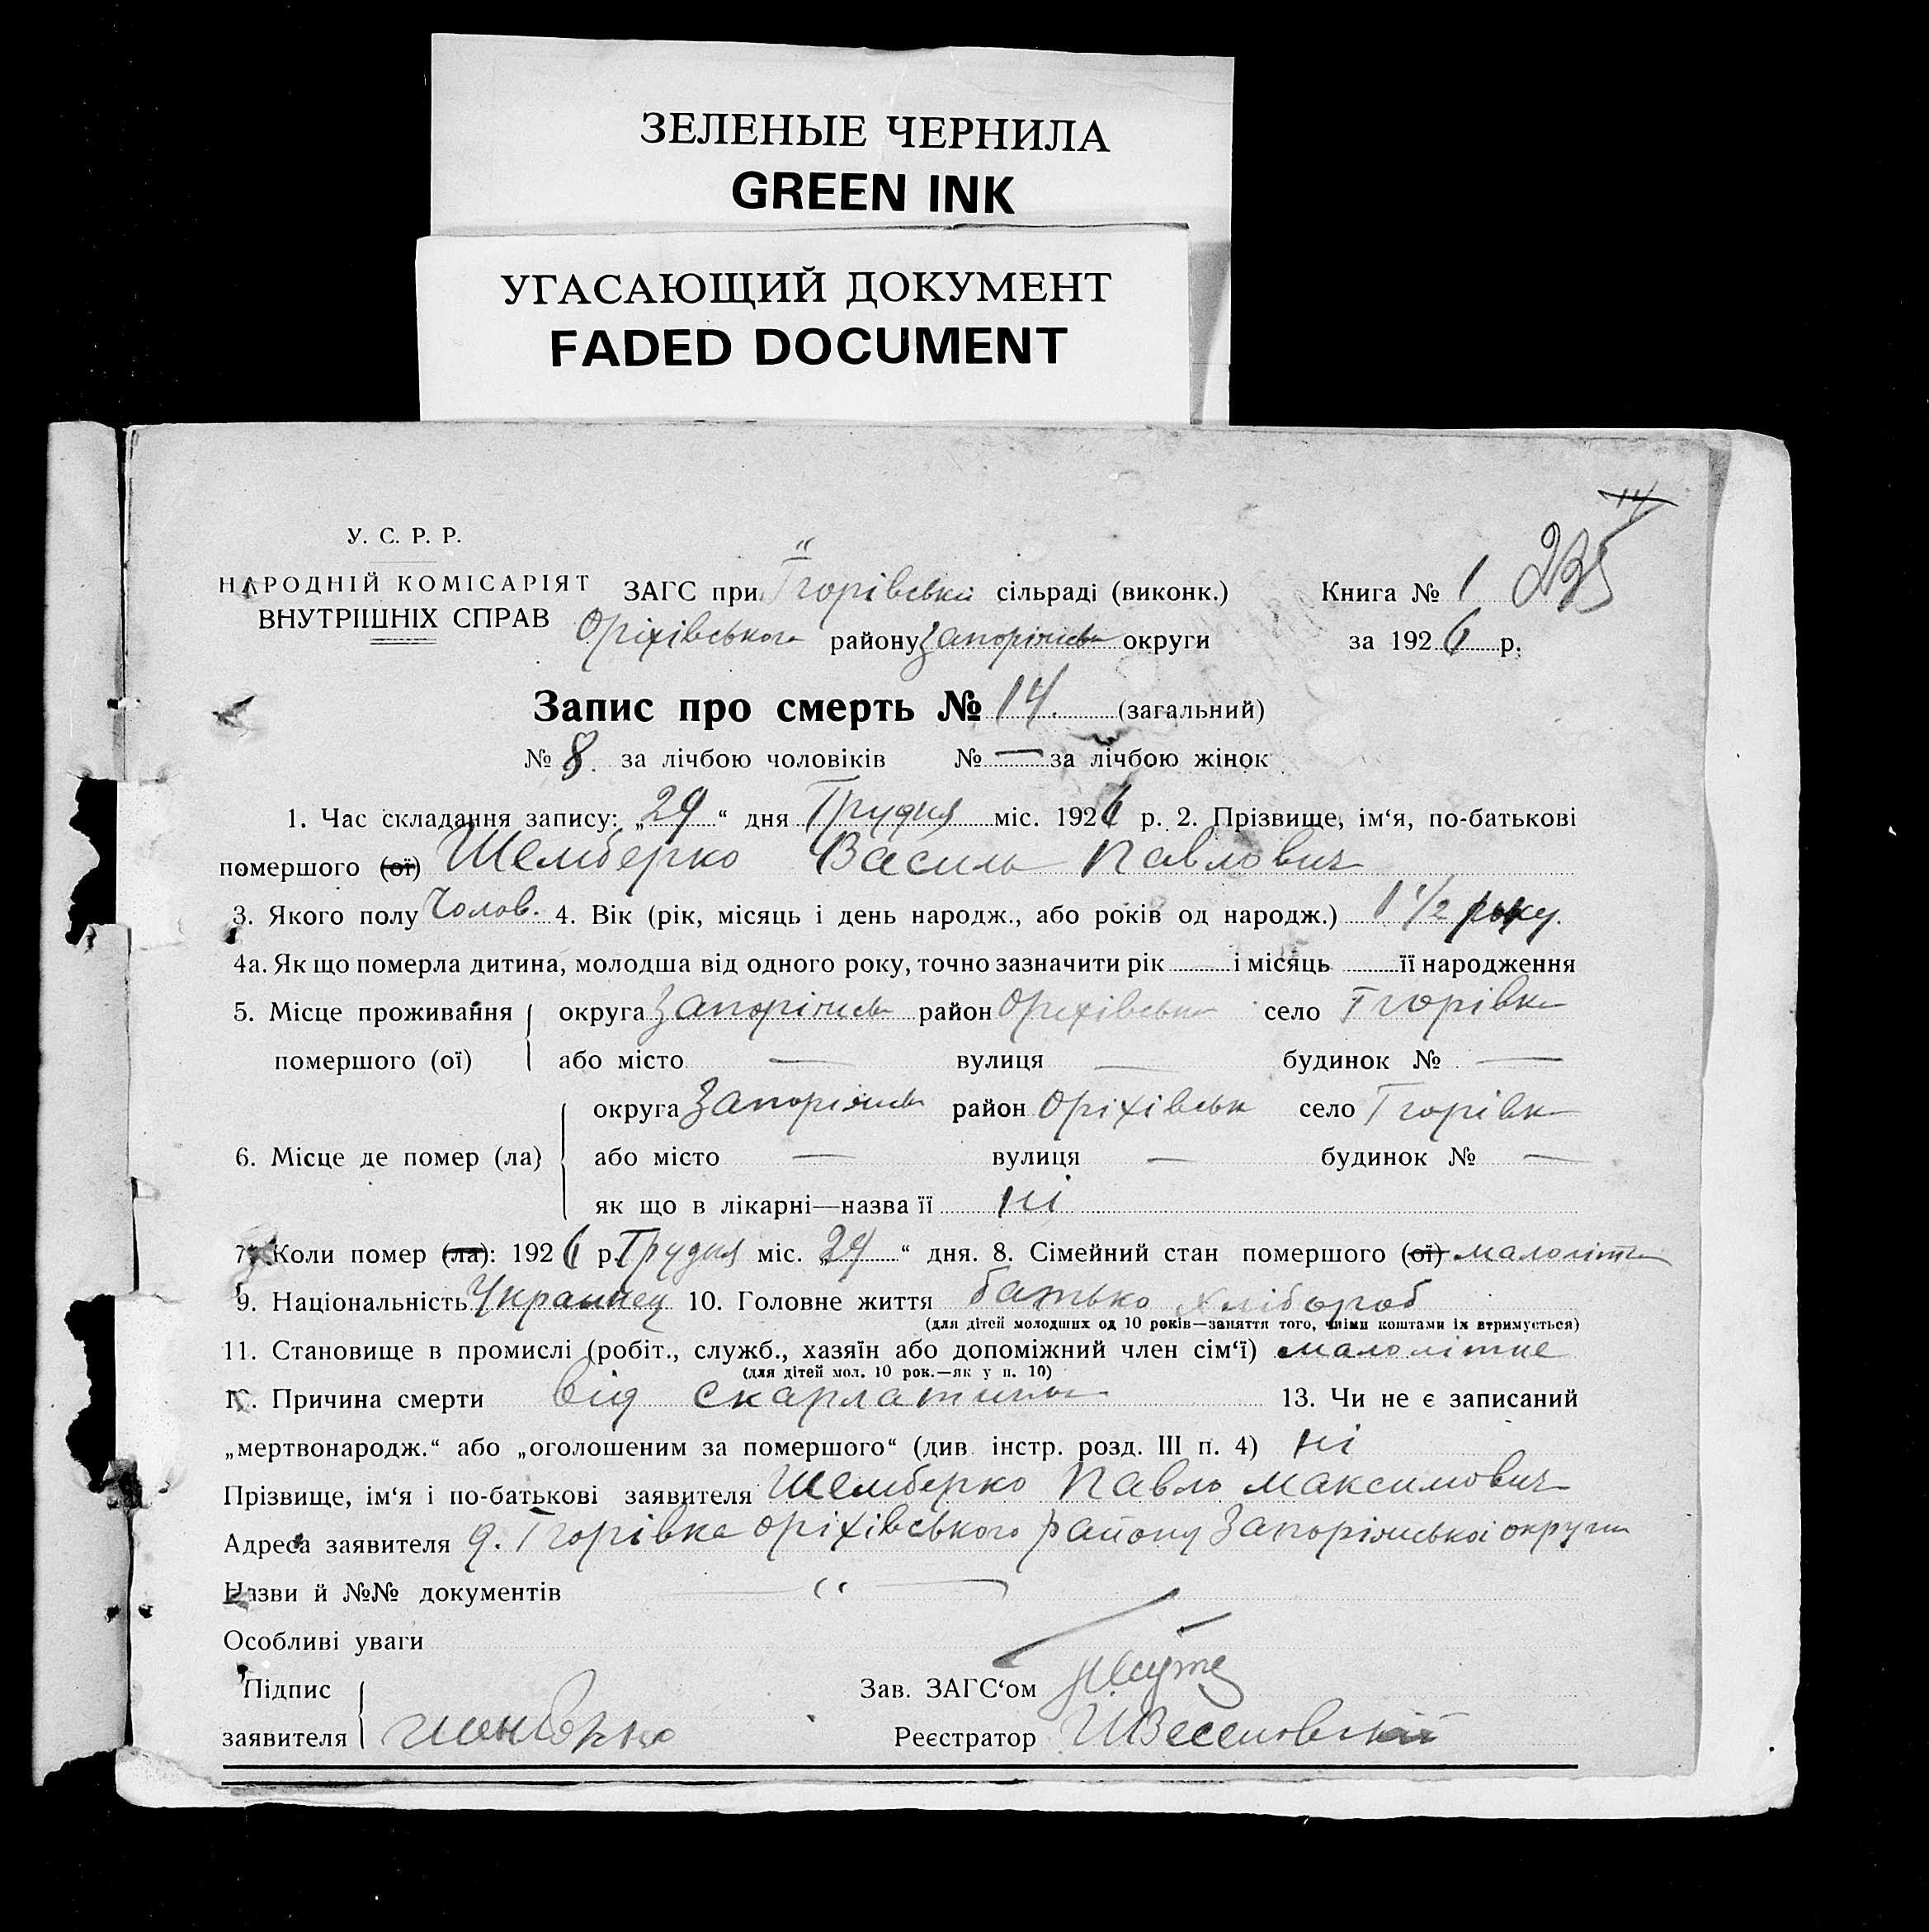 ЗЕЛЕНЫЕ ЧЕРНИЛА
GREEN INK
УГАСАЮЩИЙ ДОКУМЕНТ
FADED DOCUMENT
14
235
У. С. Р. Р.
НАРОДНІЙ КОМІСАРІЯТ
ВНУТРІШНІХ СПРАВ
ЗАГС при Ігорівській сільраді (виконк.)
Оріхівського району Запоріжськ округи
Книга № 1
за 1926 р.
Запис про смерть № 14. (загальний)
№ 8. за лічбою чоловіків № — за лічбою жінок
1. Час складання запису: „29“ дня Грудня міс. 1926 р. 2. Прізвище, ім‘я, по-батькові
помершого (ої) Шемберко Василь Павлович
3. Якого полу Чолов. 4. Вік (рік, місяць і день народж., або років од народж.) 1 1/2 року.
4а. Як що померла дитина, молодша від одного року, точно зазначити рік і місяць її народження
5. Місце проживання округа Запоріжськ район Оріхівськ село Ігорівка
помершого (ої) або місто — вулиця — будинок № —
округа Запоріжськ район Оріхівськ село Ігорівка
6. Місце де помер (ла) або місто — вулиця — будинок № —
як що в лікарні—назва її ні
7. Коли помер (ла): 1926 р. Грудня міс. „29“ дня. 8. Сімейний стан помершого (ої) малолітн
9. Національність Украинец 10. Головне життя батько хлібороб
(для дітей молодших од 10 років—заняття того, чиїми коштами їх втримується)
11. Становище в промислі (робіт., служб., хазяїн або допоміжний член сім‘ї) малолітне
(для дітей мол. 10 рок.—як у п. 10)
12. Причина смерти від скарлатини 13. Чи не є записаний
„мертвонародж.“ або „оголошеним за помершого“ (див. інстр. розд. III п. 4) ні
Прізвище, ім‘я і по-батькові заявителя Шемберко Павло Максимович
Адреса заявителя д. Ігорівка Оріхівського району Запоріжської округи
Назви й №№ документів — “ —
Особливі уваги
Підпис
заявителя
Зав. ЗАГС‘ом
Реєстратор И Веселовский